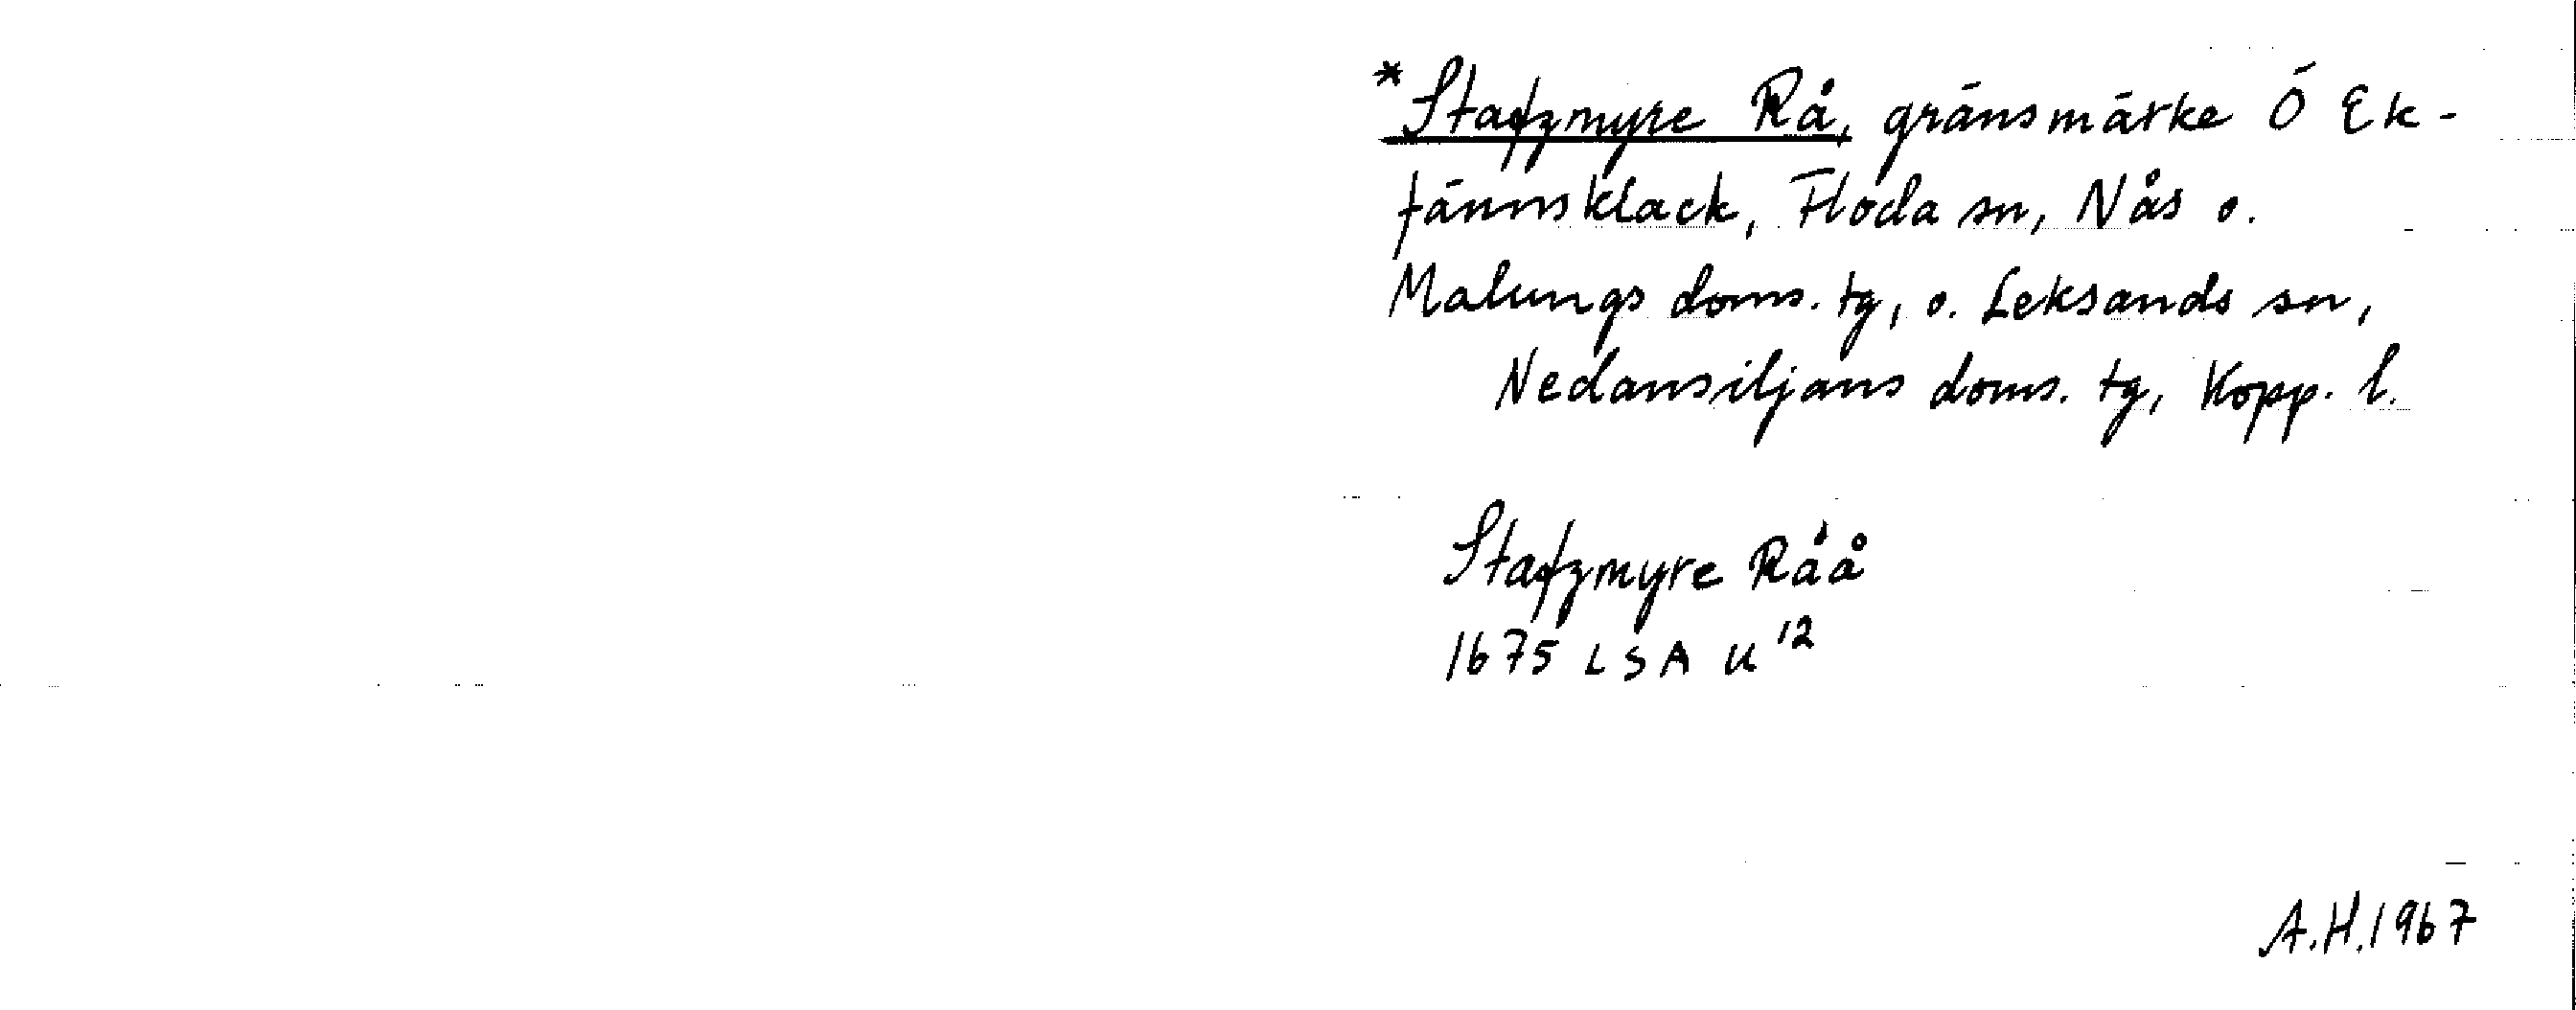 *Stafzmyre Rå, gränsmärke Ö Ek-
tännsklack, Floda sn, Nås o.
Malungs doms. tg, o. Leksands sn,
Nedansiljans doms. tg, Kopp. l.
Stafzmyre Råå
1675 LSA U 12
A.H. 1967